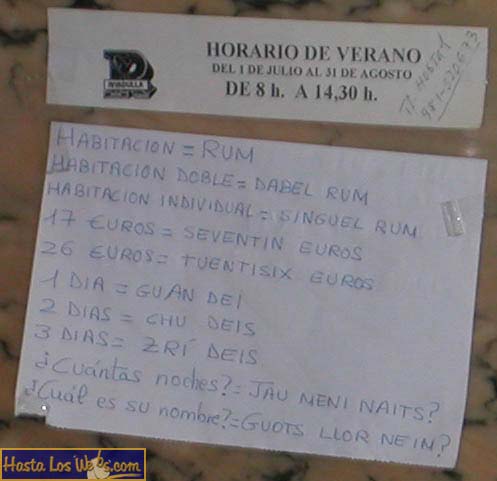 RIVADULLA
HORARIO DE VERANO
DEL 1 DE JULIO AL 31 DE AGOSTO
DE 8 h. A 14,30 h.
HABITACION = RUM
HABITACION DOBLE = DABEL RUM
HABITACION INDIVIDUAL = SINGUEL RUM
17 EUROS = SEVENTIN EUROS
26 EUROS = TUENTISIX EUROS
1 DIA = GUAN DEI
2 DIAS = CHU DEIS
3 DIAS = ZRÍ DEIS
¿Cuántas noches? = JAU MENI NAITS?
¿Cuál es su nombre? = GUOTS LLOR NEIM?
Hasta Los .com